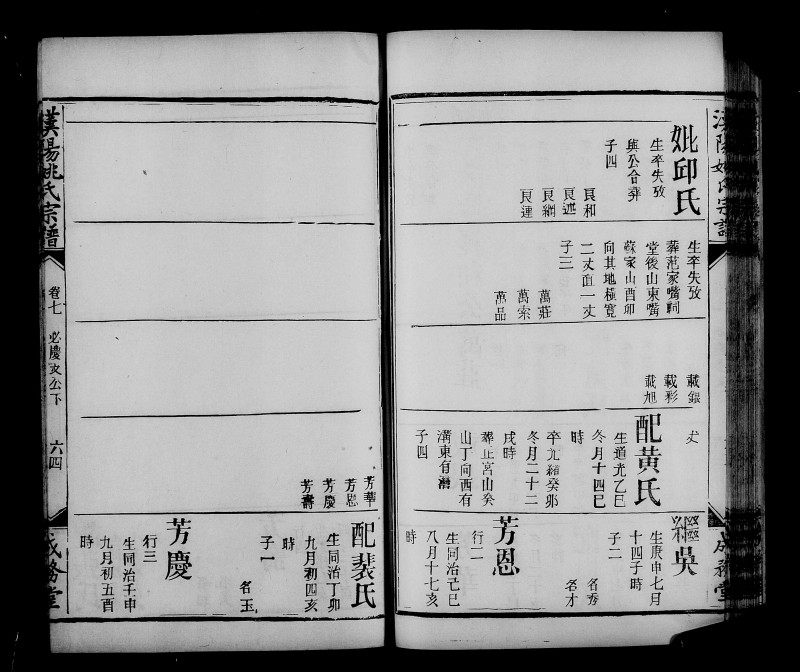 漢陽姚氏宗譜
成務堂
妣邱氏
生卒失攷
與公合葬
子四
艮和
艮述
艮綱
艮連
生卒失攷
葬范家嘴祠
堂後山東嘴
蘇家山酉卯
向其地極寬
二丈直一丈
子三
萬莊
萬索
萬品
載銀
載彩
載旭
丈
配黄氏
生道光乙巳
冬月十四巳
時
卒光緒癸卯
冬月二十二
戌時
葬正宮山癸
山丁向西有
溝東有溝
子四
芳華
芳恩
芳慶
芳壽
繼吳
生庚申七月
十四子時
子二
名秀
名才
芳恩
行二
生同治己巳
八月十七亥
時
配裴氏
生同治丁卯
九月初四亥
時
子一
名玉
芳慶
行三
生同治壬申
九月初五酉
時
漢陽姚氏宗譜
卷七
必慶文公下
六四
成務堂